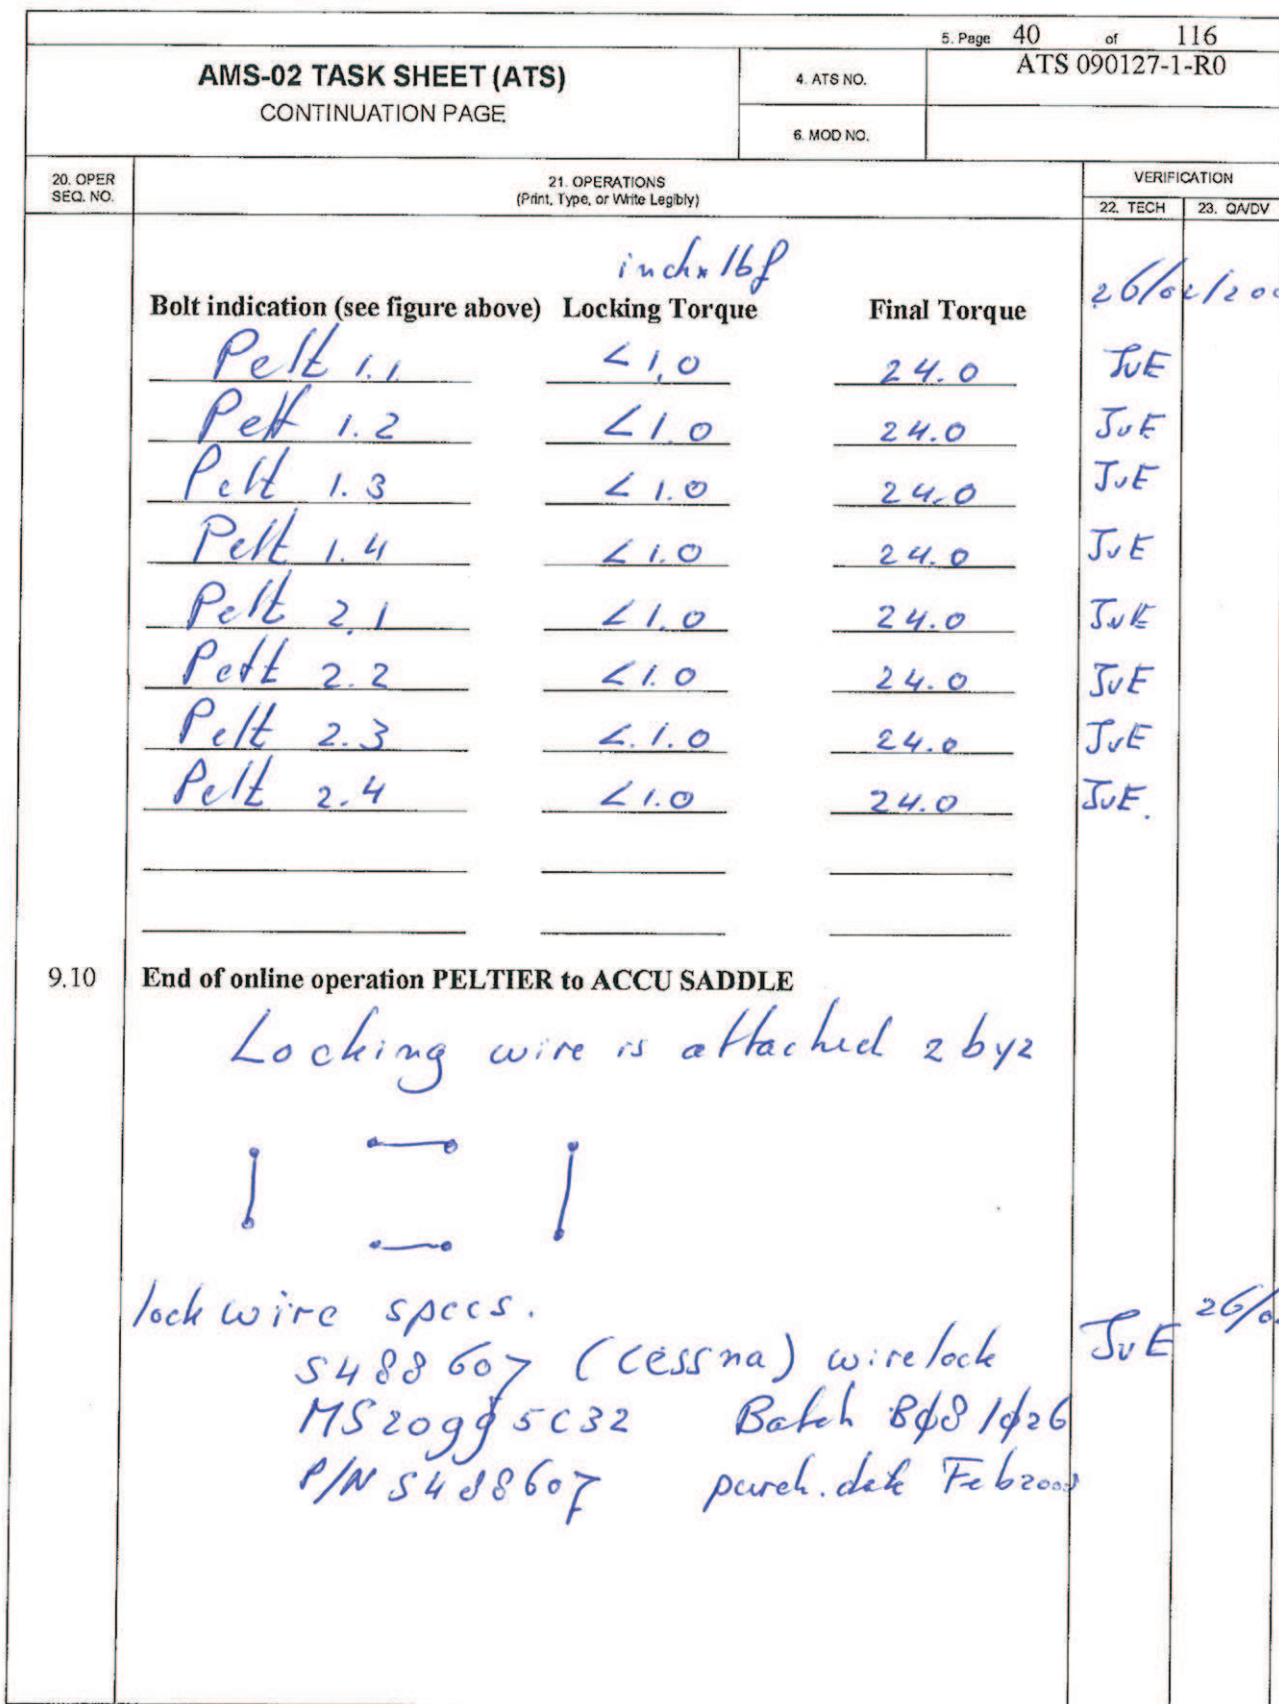 5. Page 40 of 116
AMS-02 TASK SHEET (ATS)
CONTINUATION PAGE
4. ATS NO. ATS 090127-1-R0
6. MOD NO.
20. OPER SEQ. NO.
21. OPERATIONS
(Print, Type, or Write Legibly)
VERIFICATION
22. TECH 23. QA/DV
inch*lbf
26/02/200
Bolt indication (see figure above) Locking Torque Final Torque
Pelt 1.1 <1,0 24.0 JvE
Pelt 1.2 <1.0 24.0 JvE
Pelt 1.3 <1.0 24.0 JvE
Pelt 1.4 <1.0 24.0 JvE
Pelt 2.1 <1.0 24.0 JvE
Pelt 2.2 <1.0 24.0 JvE
Pelt 2.3 <.1.0 24.0 JvE
Pelt 2.4 <1.0 24.0 JvE.
9.10 End of online operation PELTIER to ACCU SADDLE
Locking wire is attached 2 by 2
lockwire specs.
S488607 (cessna) wirelock JvE 26/0
MS20995C32 Batch BØ81Ø26
P/N S488607 purch. date Feb